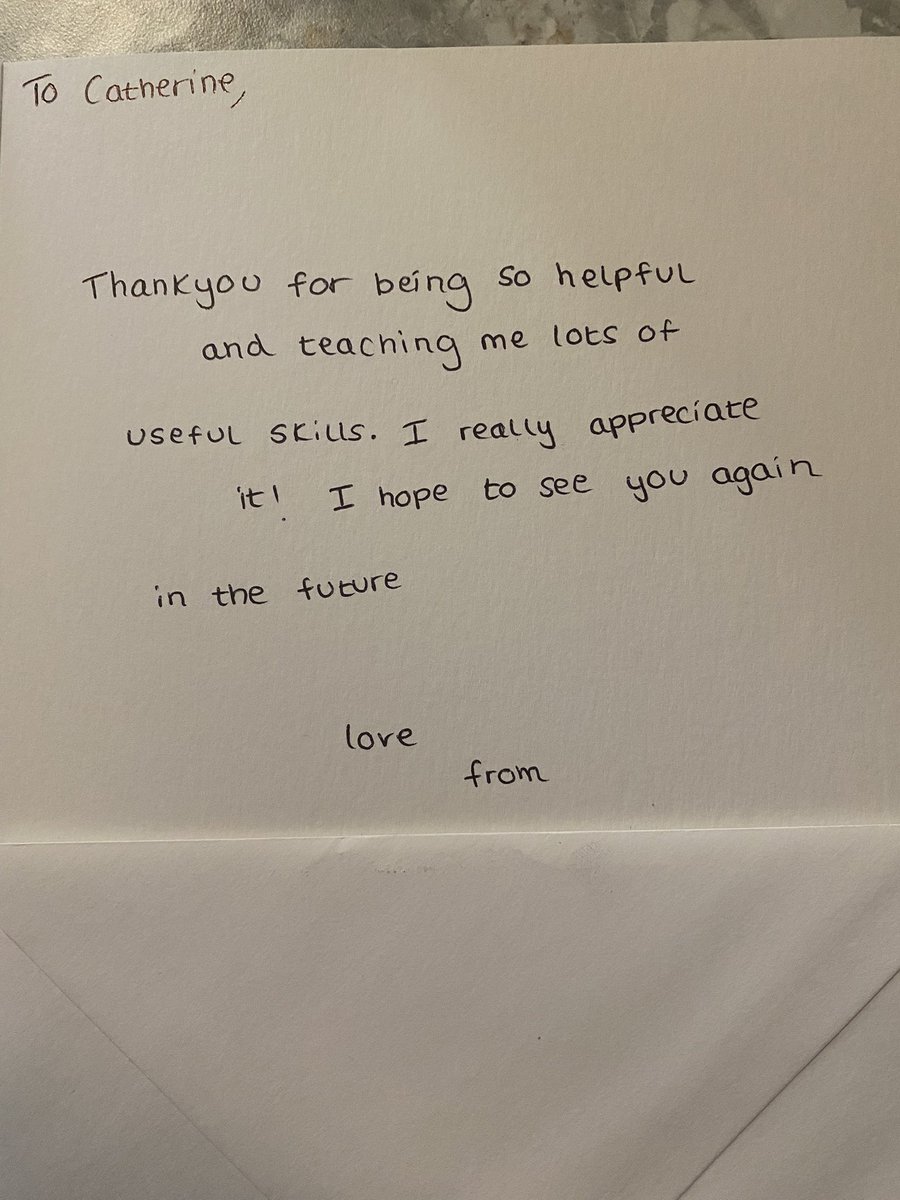 To Catherine,
Thankyou for being so helpful
and teaching me lots of
useful skills. I really appreciate
it! I hope to see you again
in the future
love
from